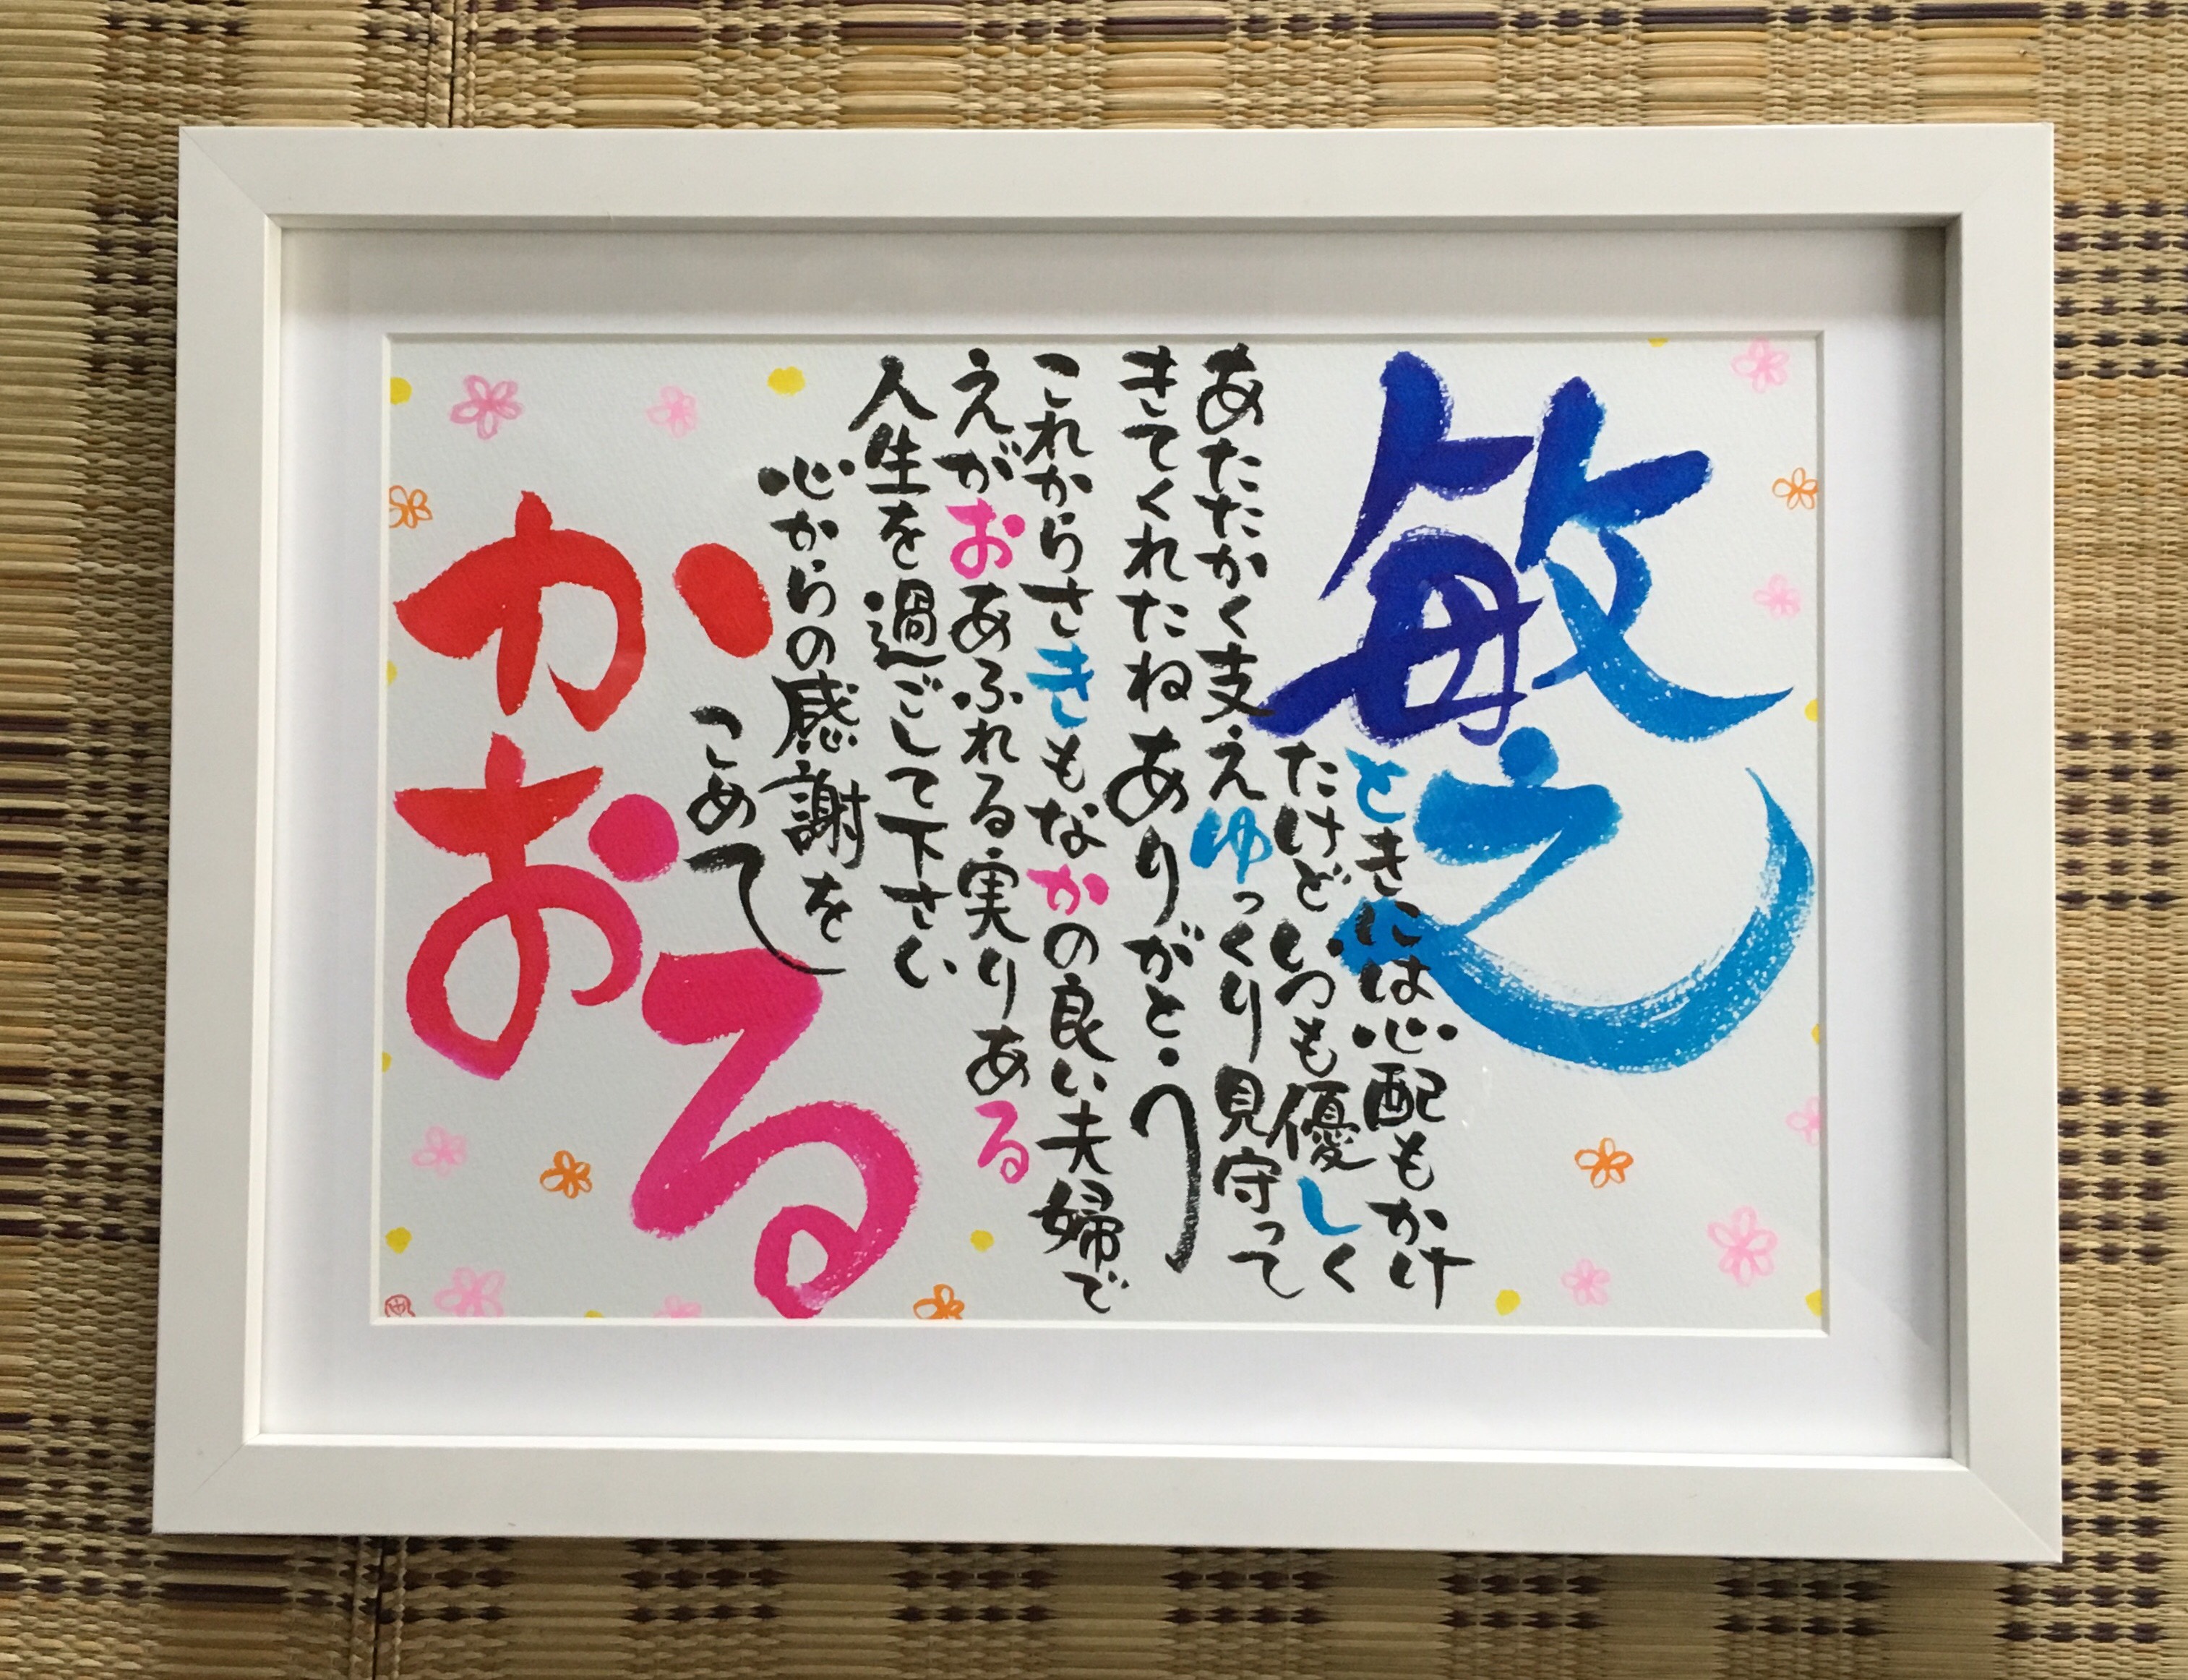 敏之
ときには心配もかけ
たけどいつも優しく
あたたかく支えゆっくり見守って
きてくれたねありがとう
これからさきもなかの良い夫婦で
えがおあふれる実りある
人生を過ごして下さい
心からの感謝を
こめて
かおる